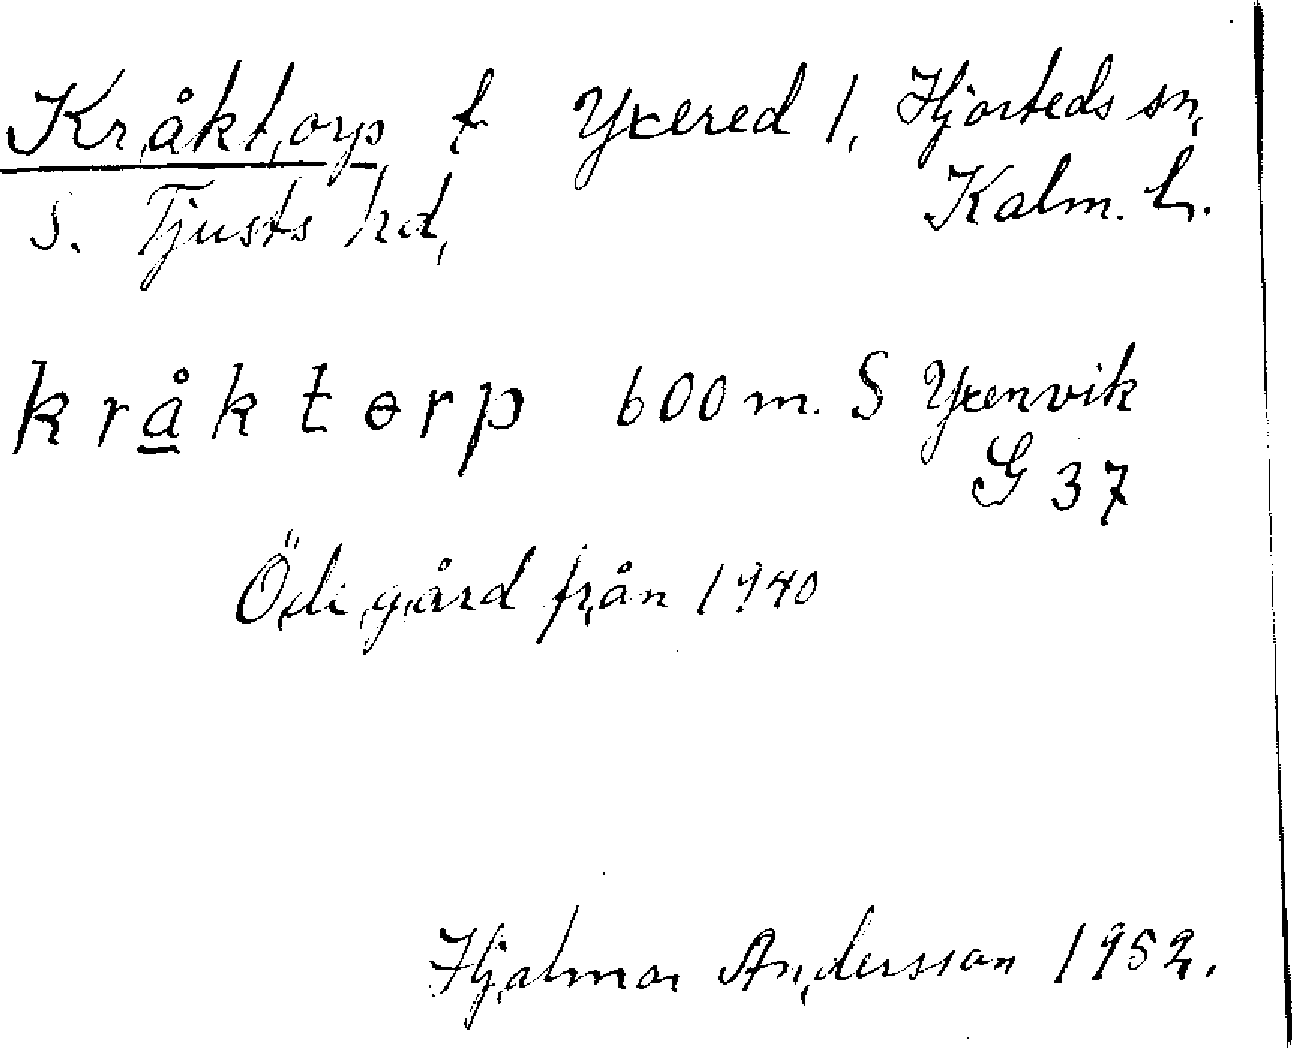 Kråktorp t. Yxered 1, Hjorteds sn,
S. Tjusts hd, Kalm. L.
kråktɵrp 600 m. S Yxenvik
G 37
Öde gård från 1940
Hjalmar Andersson 1952.